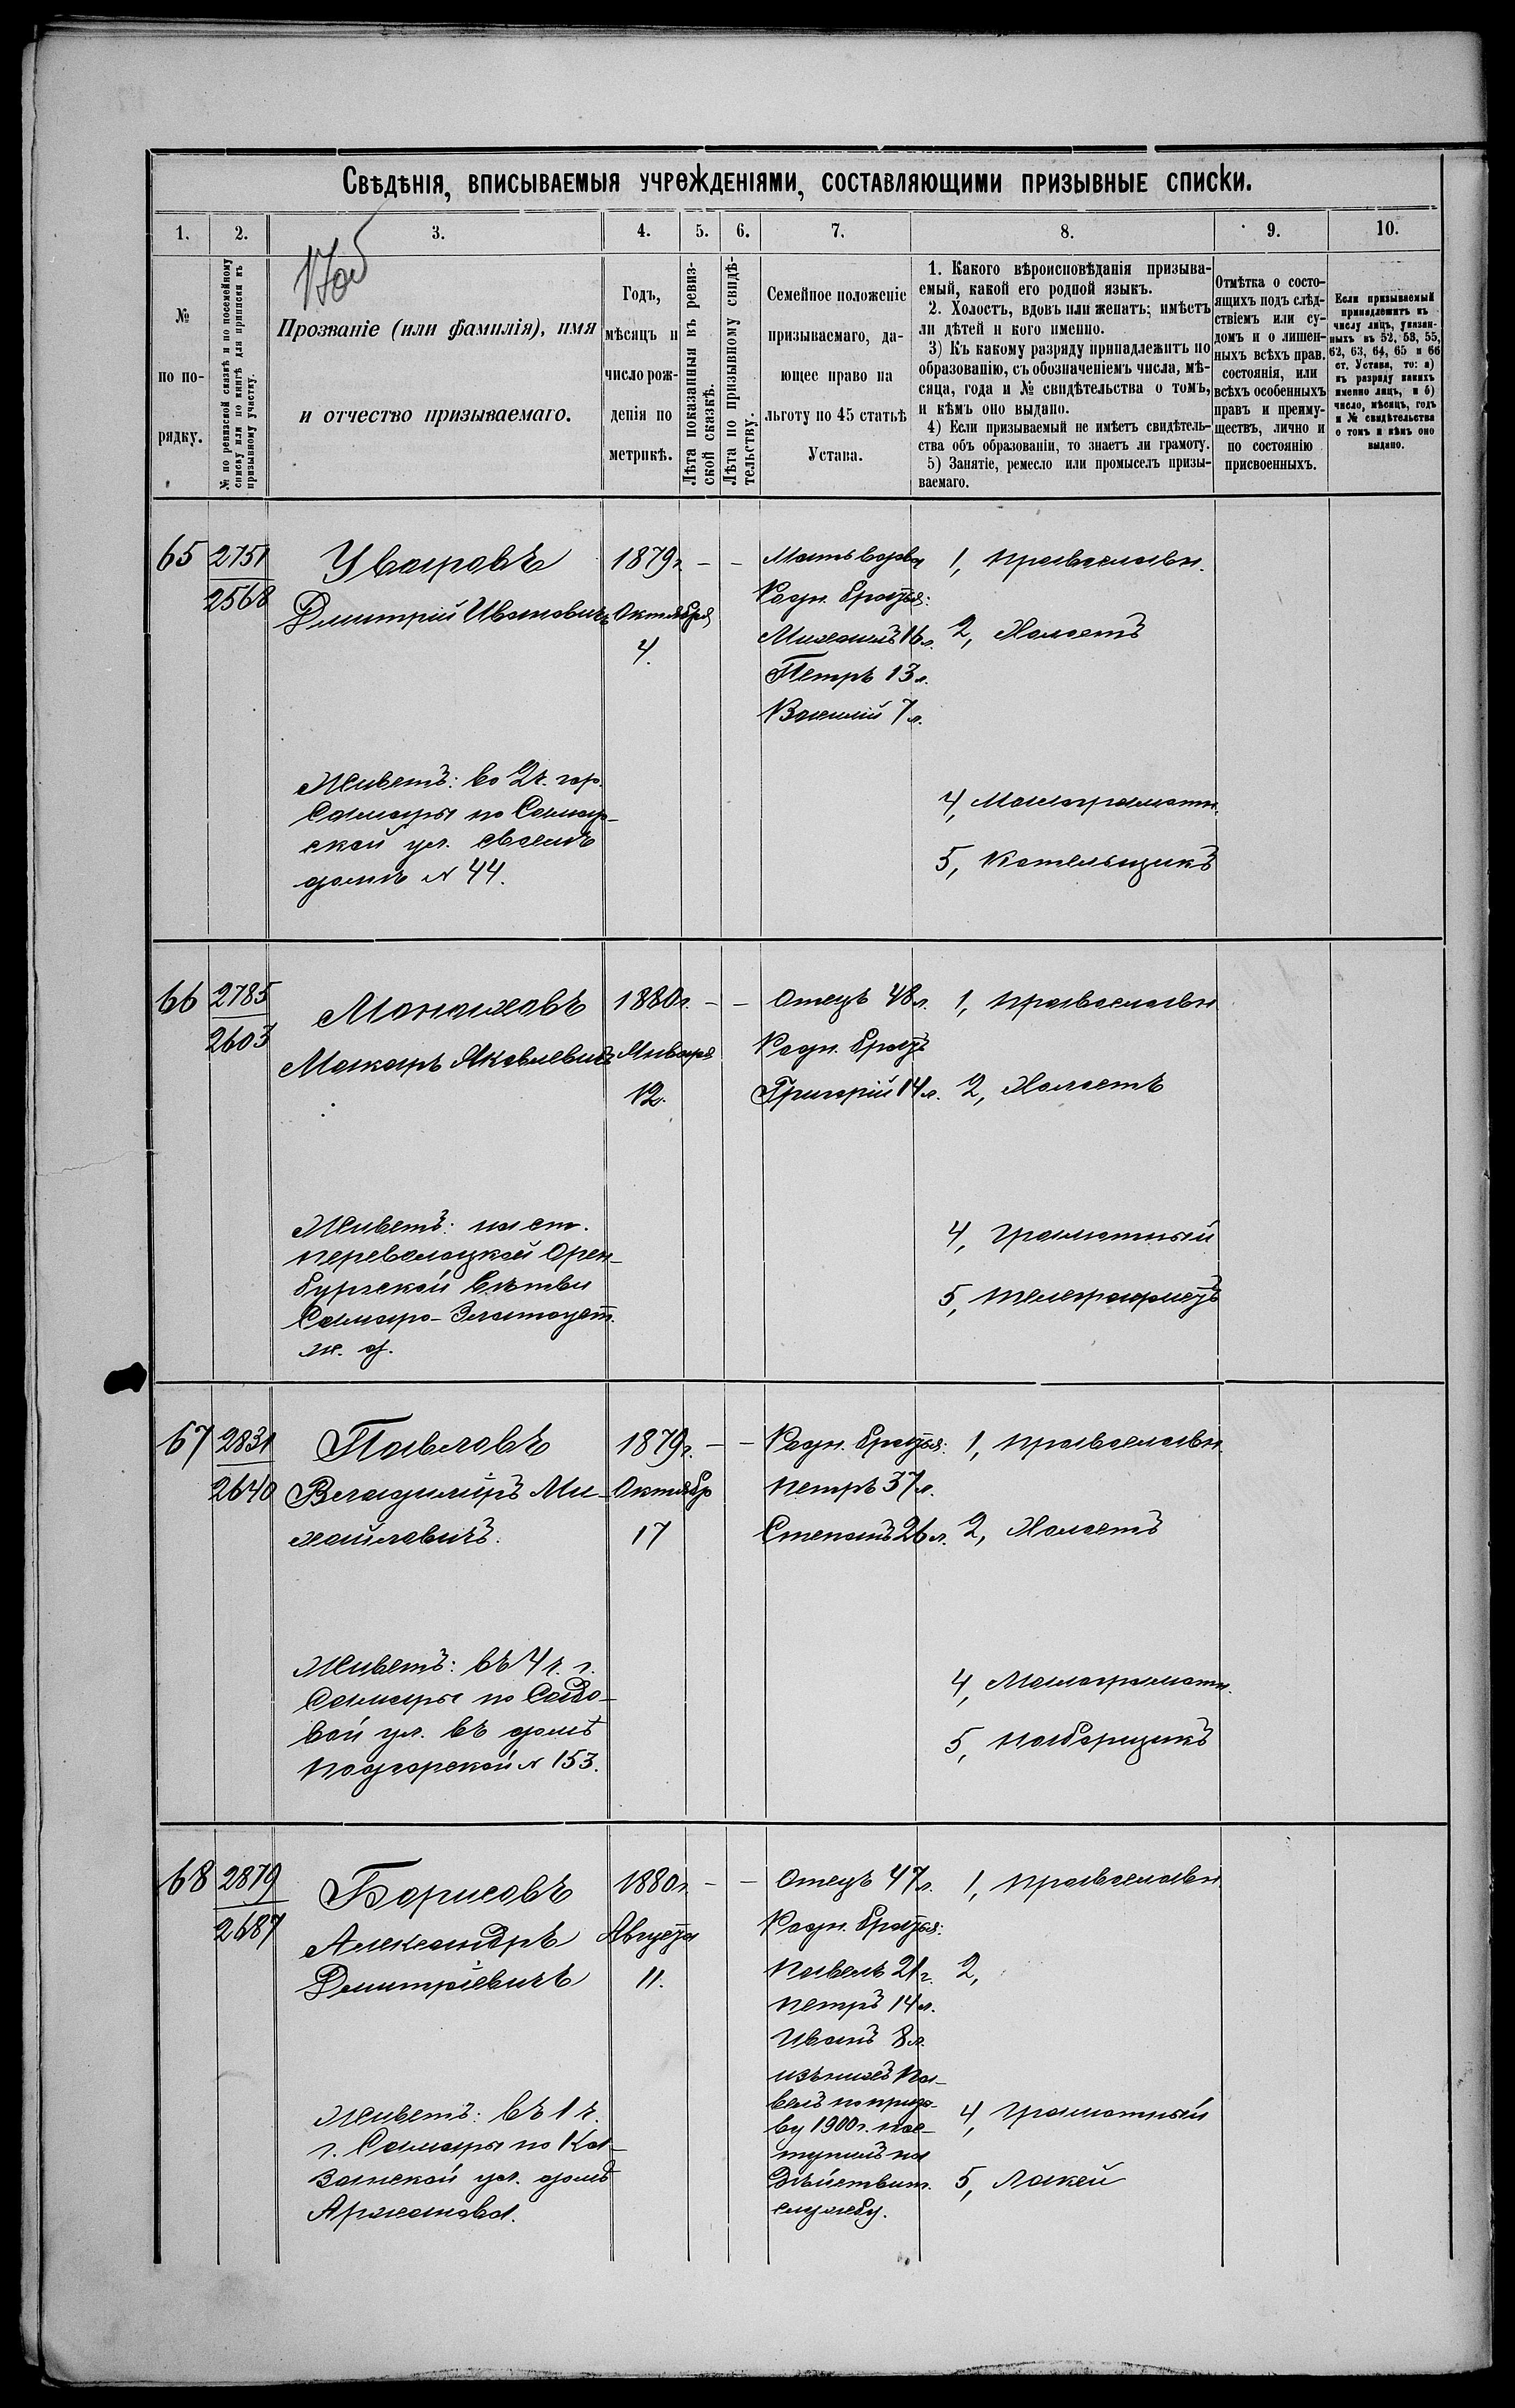 Свѣдѣнія, вписываемыя учрежденіями, составляющими призывные списки.
1. 2. 3. 4. 5. 6. 7. 8. 9. 10.
№
по по-
рядку.
№ по ревизской сказкѣ и по посемейному
списку или по книгѣ для приписки къ
призывному участку.
Прозваніе (или фамилія), имя
и отчество призываемаго.
Годъ,
мѣсяцъ и
число рож-
денія по
метрикѣ.
Лѣта показанныя въ ревиз-
ской сказкѣ.
Лѣта по призывному свидѣ-
тельству.
Семейное положеніе
призываемаго, да-
ющее право на
льготу по 45 статьѣ
Устава.
1. Какого вѣроисповѣданія призыва-
емый, какой его родной языкъ.
2. Холостъ, вдовъ или женатъ; имѣетъ
ли дѣтей и кого именно.
3) Къ какому разряду принадлежитъ по
образованію, съ обозначеніемъ числа, мѣ-
сяца, года и № свидѣтельства о томъ,
и кѣмъ оно выдано.
4) Если призываемый не имѣетъ свидѣтель-
ства объ образованіи, то знаетъ ли грамоту.
5) Занятіе, ремесло или промыселъ призы-
ваемаго.
Отмѣтка о состо-
ящихъ подъ слѣд-
ствіемъ или су-
домъ и о лишен-
ныхъ всѣхъ прав.
состоянія, или
всѣхъ особенныхъ
правъ и преиму-
ществъ, лично и
по состоянію
присвоенныхъ.
Если призываемый
принадлежитъ къ
числу лицъ, указан-
ныхъ въ 52, 53, 55,
62, 63, 64, 65 и 66
ст. Устава, то: а)
къ разряду какихъ
именно лицъ, и б)
число, мѣсяцъ, годъ
и № свидѣтельства
о томъ и кѣмъ оно
выдано.
65
2751
2568
Уваровъ
Дмитрій Ивановичъ
1879 г.
Октября
4.
– –
Мать вдова
Родн. братья:
Михаилъ 16 л.
Петръ 13 л.
Василій 7 л.
1, Православн.
2, Холостъ
Живетъ: во 2 ч. гор.
Самары по Самар-
ской ул. своемъ
домѣ № 44.
4, Малограмотн.
5, Котельщикъ
66
2785
2603
Монаховъ
Макаръ Яковлевичъ
1880 г.
Января
12.
– –
Отецъ 48 л.
Родн. братъ
Григорій 14 л.
1, Православн
2, Холостъ
Живетъ: на ст.
Переволоцкой Орен-
бургской вѣтви
Самаро-Златоуст.
ж. д.
4, Грамотный
5, Телеграфистъ
67
2831
2640
Павловъ
Владимиръ Ми-
хайловичъ.
1879 г.
Октябр
17
– –
Родн. братья:
Петръ 37 л.
Степанъ 26 л.
1, Православн.
2, Холостъ
Живетъ: въ 4 ч. г.
Самары по Садо-
вой ул. въ домѣ
Подгорской № 153.
4, Малограмотн.
5, Наборщикъ
68
2879
2687
Борисовъ
Александръ
Дмитріевичъ
1880 г.
Августа
11.
– –
Отецъ 47 л.
Родн. братья:
Павелъ 21 г.
Петръ 14 л.
Иванъ 8 л.
изъ нихъ Па-
велъ по призы-
ву 1900 г. пос-
тупилъ на
дѣйствит.
службу.
1, Православн.
2,
Живетъ: въ 1 ч.
г. Самары по Ка-
занской ул. домъ
Аржанова.
4, Грамотный
5, Лакей